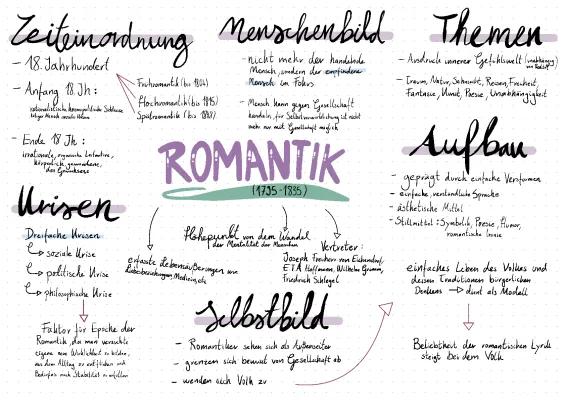 Zeiteinordnung
- 18. Jahrhundert
Frühromantik (bis 1804)
Hochromantik (bis 1815)
Spätromantik (bis 1848)
- Anfang 18. Jh:
- Ende 18 Jh:
irrationale, organische Initiative,
körperliche, gewordene,
das Grundlose
Menschenbild
- nicht mehr der handelnde
Mensch, sondern der empfindene
Mensch im Fokus
- Mensch kann gegen Gesellschaft
handeln, für Selbstverwirklichung ist nicht
mehr nur mit Gesellschaft möglich
Themen
- Ausdruck innerer Gefühlswelt (unabhängig
von Realität)
- Traum, Natur, Sehnsucht, Reisen, Freiheit,
Fantasie, Unmut, Poesie, Unabhängigkeit
ROMANTIK
(1795-1835)
Höhepunkt von dem Wandel
der Mentalität der Menschen
erfasste Lebensäußerungen wie
Liebesbeziehungen, Medizin, etc
Vertreter:
Joseph Freiherr von Eichendorf,
ETA Hoffmann, Wilhelm Grimm,
Friedrich Schlegel
Aufbau
- geprägt durch einfache Versformen
- einfache, verständliche Sprache
- ästhetische Mittel
- Stilmittel: Symbolik, Poesie, Humor,
romantische Ironie
Krisen
Dreifache Krisen
soziale Krise
politische Krise
philosophische Krise
Faktor für Epoche der
Romantik, da man versuchte
eigene neue Wirklichkeit zu bilden,
aus dem Alltag zu entfliehen und
Bedürfnis nach Stabilität zu erfüllen
Selbstbild
- Romantiker sehen sich als Außenseiter
- grenzen sich bewusst von Gesellschaft ab
- wenden sich Volk zu
einfaches Leben des Volkes und
dessen Traditionen bürgerlichen
Denkens → dient als Modell
Beliebtheit der romantischen Lyrik
steigt bei dem Volk